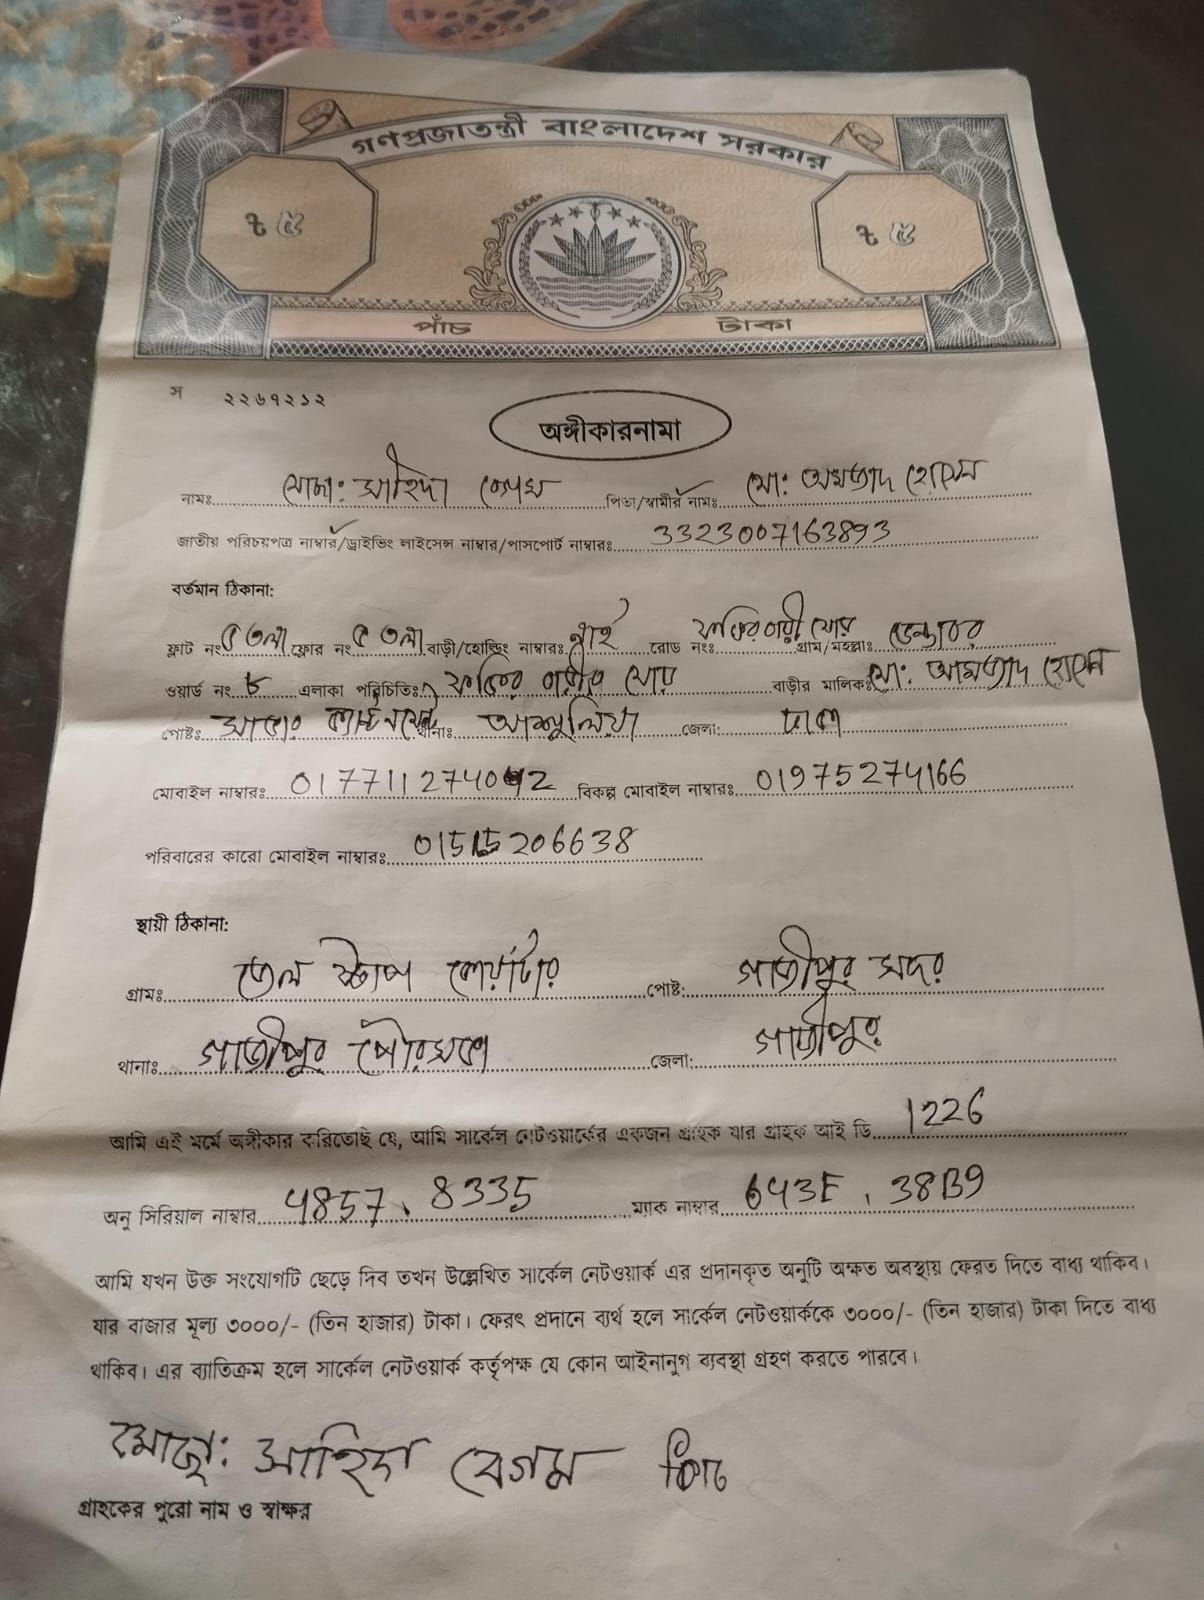 গণপ্রজাতন্ত্রী বাংলাদেশ সরকার
৳ ৫ ৳ ৫
পাঁচ টাকা
স ২২৬৭২১২
অঙ্গীকারনামা
নামঃ মোছা: সাহিদা বেগম পিতা/স্বামীর নামঃ মো: আমজাদ হোসেন
জাতীয় পরিচয়পত্র নাম্বার/ড্রাইভিং লাইসেন্স নাম্বার/পাসপোর্ট নাম্বারঃ 3323007163893
বর্তমান ঠিকানা:
ফ্লাট নংঃ ৫ তলা ফ্লোর নংঃ ৫ তলা বাড়ী/হোল্ডিং নাম্বারঃ নাই রোড নংঃ গ্রাম/মহল্লাঃ ডেন্ডাবর
ওয়ার্ড নংঃ ৮ এলাকা পরিচিতিঃ বাড়ীর মালিকঃ মো: আমজাদ হোসেন
পোষ্টঃ সাভার ক্যান্টনমেন্ট থানাঃ আশুলিয়া জেলা: ঢাকা
মোবাইল নাম্বারঃ 017711274042 বিকল্প মোবাইল নাম্বারঃ 01975274166
পরিবারের কারো মোবাইল নাম্বারঃ 01515206638
স্থায়ী ঠিকানা:
গ্রামঃ পোষ্ট: গাজীপুর সদর
থানাঃ গাজীপুর পৌরসভা জেলা: গাজীপুর
আমি এই মর্মে অঙ্গীকার করিতেছি যে, আমি সার্কেল নেটওয়ার্কের একজন গ্রাহক যার গ্রাহক আই ডি 1226
অনু সিরিয়াল নাম্বার 4857. 8335 ম্যাক নাম্বার 643E. 38B9
আমি যখন উক্ত সংযোগটি ছেড়ে দিব তখন উল্লেখিত সার্কেল নেটওয়ার্ক এর প্রদানকৃত অনুটি অক্ষত অবস্থায় ফেরত দিতে বাধ্য থাকিব।
যার বাজার মূল্য ৩০০০/- (তিন হাজার) টাকা। ফেরৎ প্রদানে ব্যর্থ হলে সার্কেল নেটওয়ার্ককে ৩০০০/- (তিন হাজার) টাকা দিতে বাধ্য
থাকিব। এর ব্যাতিক্রম হলে সার্কেল নেটওয়ার্ক কর্তৃপক্ষ যে কোন আইনানুগ ব্যবস্থা গ্রহণ করতে পারবে।
মোছা: সাহিদা বেগম
গ্রাহকের পুরো নাম ও স্বাক্ষর